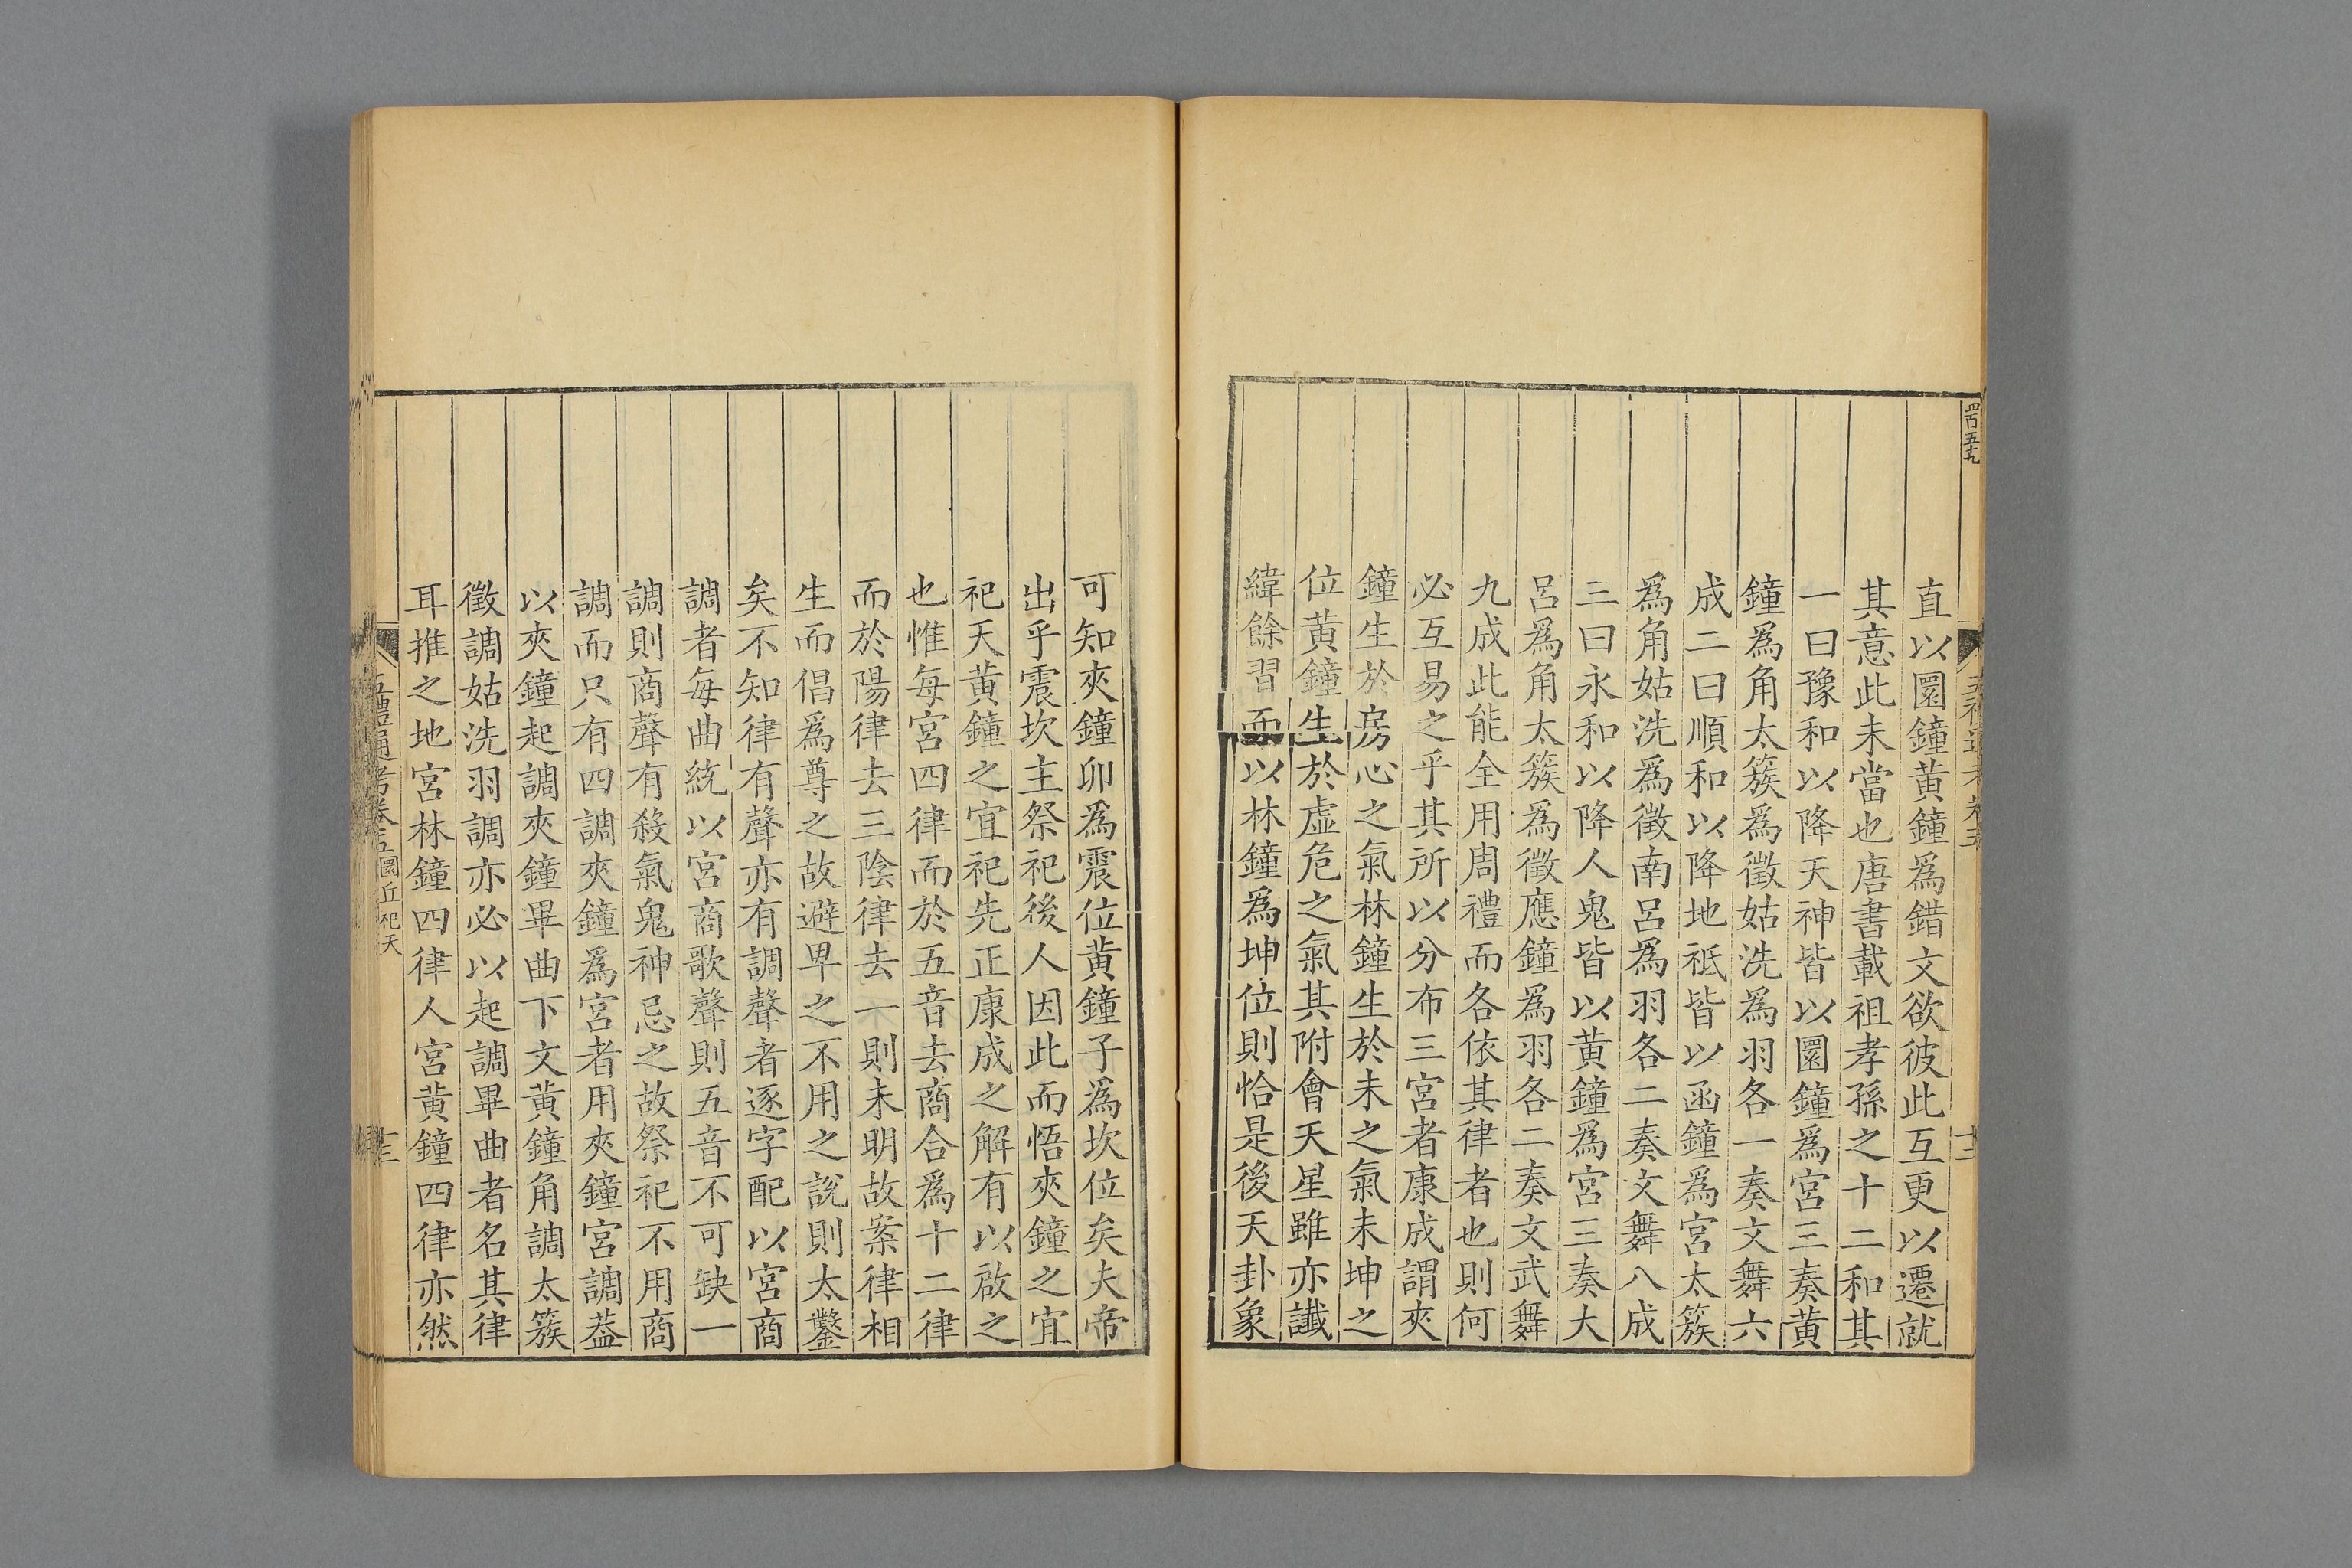 直以圜鐘黃鐘爲錯文欲彼此互更以遷就
其意此未當也唐書載祖孝孫之十二和其
一曰豫和以降天神皆以圜鐘爲宮三奏黃
鐘爲角太簇爲徵姑洗爲羽各一奏文舞六
成二曰順和以降地祇皆以函鐘爲宮太簇
爲角姑洗爲徵南呂爲羽各二奏文舞八成
三曰永和以降人鬼皆以黃鐘爲宮三奏大
呂爲角太簇爲徵應鐘爲羽各二奏文武舞
九成此能全用周禮而各依其律者也則何
必互易之乎其所以分布三宮者康成謂夾
鐘生於房心之氣林鐘生於未之氣未坤之
位黃鐘生於虛危之氣其附會天星雖亦讖
緯餘習而以林鐘爲坤位則恰是後天卦象
可知夾鐘卯爲震位黃鐘子爲坎位矣夫帝
出乎震坎主祭祀後人因此而悟夾鐘之宜
祀天黃鐘之宜祀先正康成之解有以啟之
也惟每宮四律而於五音去商合爲十二律
而於陽律去三陰律去一則未明故案律相
生而倡爲尊之故避卑之不用之說則太鑿
矣不知律有聲亦有調聲者逐字配以宮商
調者每曲統以宮商歌聲則五音不可缺一
調則商聲有殺氣鬼神忌之故祭祀不用商
調而只有四調夾鐘爲宮者用夾鐘宮調葢
以夾鐘起調夾鐘畢曲下文黃鐘角調太簇
徵調姑洗羽調亦必以起調畢曲者名其律
耳推之地宮林鐘四律人宮黃鐘四律亦然
五禮通考卷五 圜丘祀天 十三